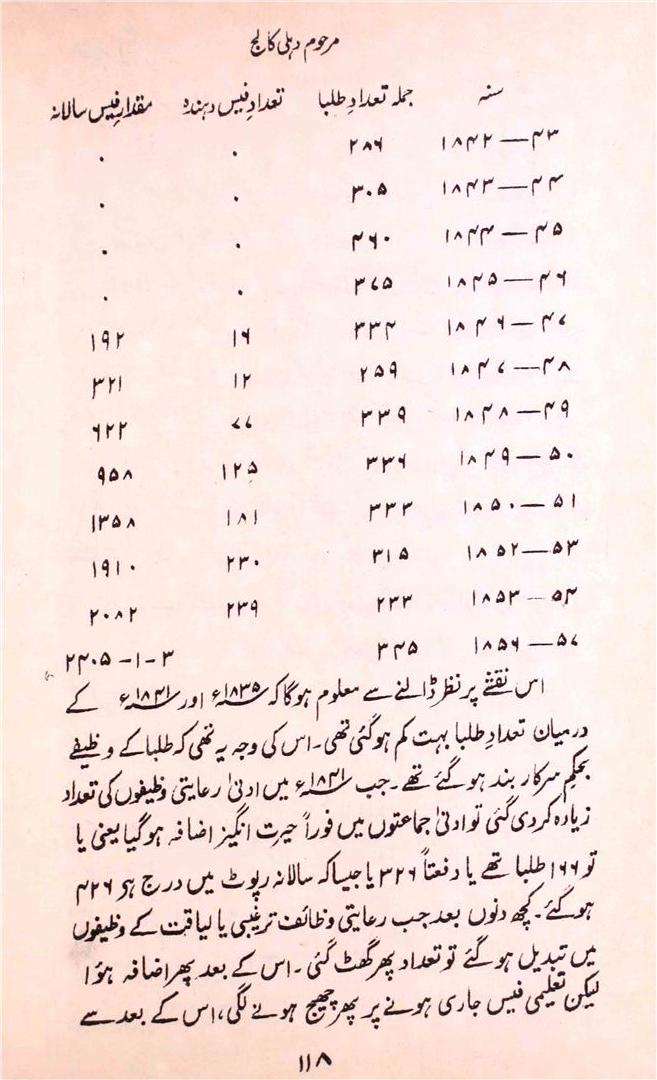 مرحوم دہلی کالج
سنہ جملہ تعدادِ طلبا تعدادِ فیس دہندہ مقدارِ فیس سالانہ
۱۸۴۲—۴۳ ۲۸۶ ۰ ۰
۱۸۴۳—۴۴ ۳۰۵ ۰ ۰
۱۸۴۴—۴۵ ۴۶۰ ۰ ۰
۱۸۴۵—۴۶ ۳۷۵ ۰ ۰
۱۸۴۶—۴۷ ۳۳۴ ۱۶ ۱۹۲
۱۸۴۷—۴۸ ۲۵۹ ۱۲ ۳۲۱
۱۸۴۸—۴۹ ۳۳۹ ۷۷ ۶۲۲
۱۸۴۹—۵۰ ۳۳۶ ۱۲۵ ۹۵۸
۱۸۵۰—۵۱ ۳۳۳ ۱۸۱ ۱۳۵۸
۱۸۵۲—۵۳ ۳۱۵ ۲۳۰ ۱۹۱۰
۱۸۵۳—۵۴ ۲۳۳ ۲۳۹ ۲۰۸۲
۱۸۵۶—۵۷ ۳۴۵ ۳-۱-۲۴۰۵
اس نقشے پر نظر ڈالنے سے معلوم ہوگا کہ ۱۸۳۵ء اور ۱۸۴۱ء کے
درمیان تعدادِ طلبا بہت کم ہوگئی تھی۔ اس کی وجہ یہ تھی کہ طلبا کے وظیفے
بحکمِ سرکار بند ہو گئے تھے۔ جب ۱۸۴۱ء میں ادنیٰ رعایتی وظیفوں کی تعداد
زیادہ کر دی گئی تو ادنیٰ جماعتوں میں فوراً حیرت انگیز اضافہ ہو گیا یعنی یا
تو ۱۶۶ طلبا تھے یا دفعتاً ۳۲۶ یا جیسا کہ سالانہ رپوٹ میں درج ہر ۴۲۶
ہو گئے۔ کچھ دنوں بعد جب رعایتی وظائف ترغیبی یا لیاقت کے وظیفوں
میں تبدیل ہو گئے تو تعداد پھر گھٹ گئی۔ اس کے بعد پھر اضافہ ہؤا
لیکن تعلیمی فیس جاری ہونے پر پھر چھیج ہونے لگی، اس کے بعد سے
۱۱۸